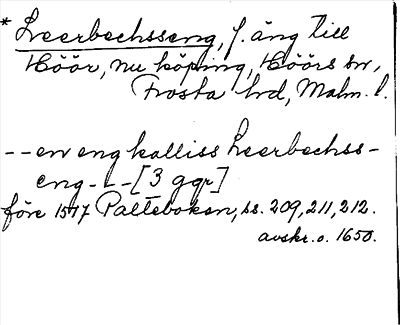 * Leerbechsseng, f. äng till
Höör, nu köping, Höörs sn,
Frosta hd, Malm. l.
--en eng kalliss Leerbechss-
eng---[3 ggr]
före 1577 Palteboken, ss. 209, 211, 212.
avskr. o. 1650.